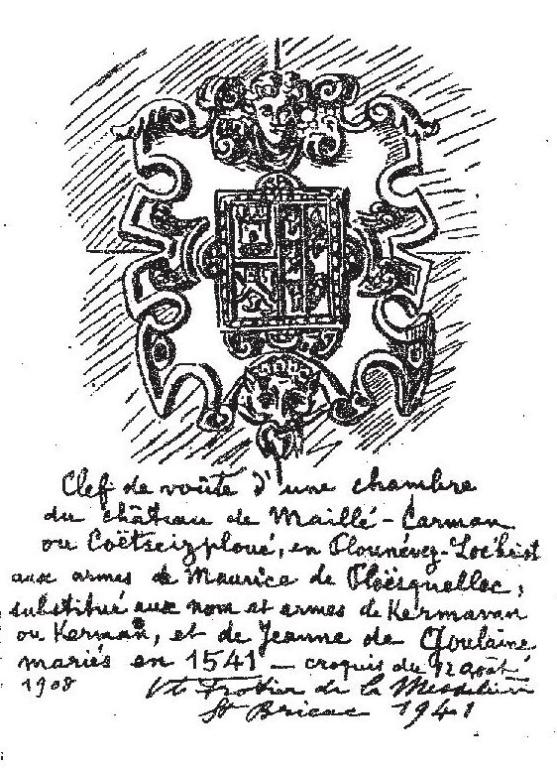 Clef de voûte d'une chambre
du château de Maillé-Carman
ou Coëtseizploué, en Plounévez-Loc'hrist
aux armes de Maurice de Ploësquellec,
substitué aux nom et armes de Kermavan
ou Kerman, et de Jeanne de Goulaine
mariés en 1541 — croquis du 12 août
1908 Vte Frotier de la Messelière
St Brieuc 1941